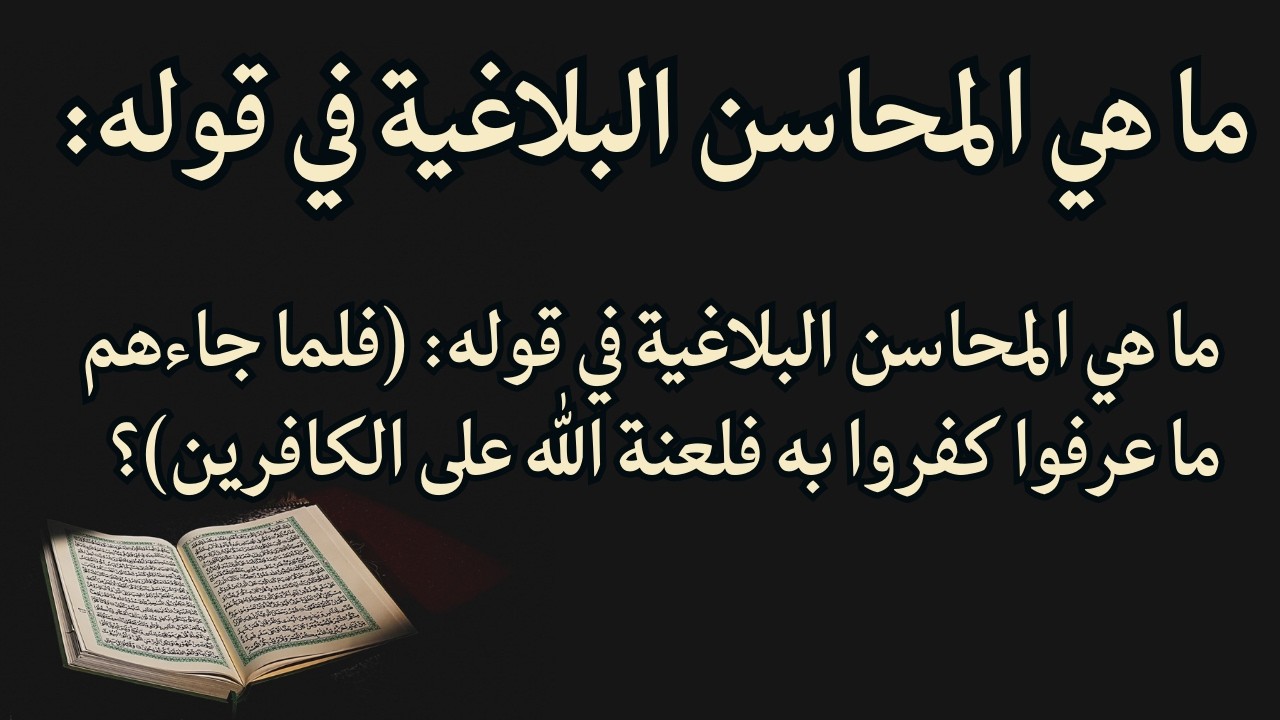 ما هي المحاسن البلاغية في قوله:
ما هي المحاسن البلاغية في قوله: (فلما جاءهم
ما عرفوا كفروا به فلعنة الله على الكافرين)؟